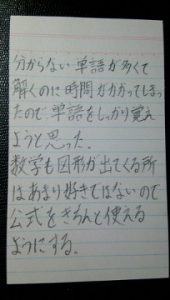 分からない単語が多くて
解くのに時間がかかってしまっ
たので単語をしっかり覚え
ようと思った.
数学も図形が出てくる所
はあまり好きではないので
公式をきちんと使える
ようにする.